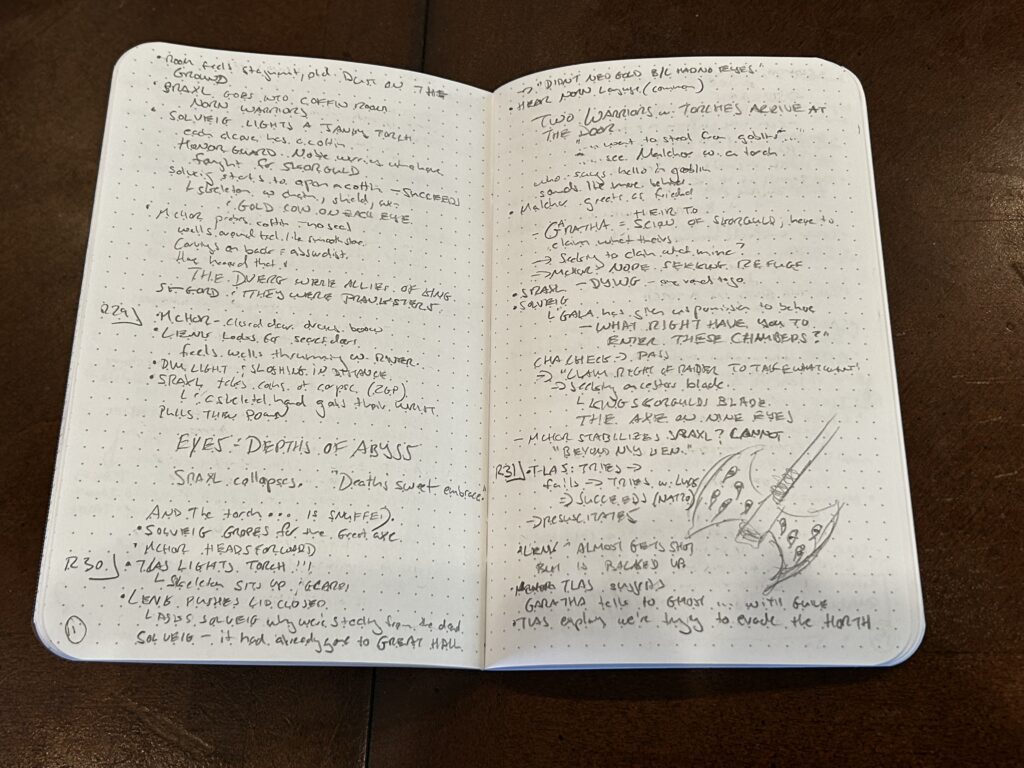 • Room feels stagnant, old. Dust on THE
GROUND
• SRAXL GOES INTO COFFIN ROOM
NORN WARRIORS
• SOLVEIG LIGHTS A TORCH
each alcove has a coffin
HONOR GUARD. Noble warriors who have
fought for SKORGULD
Solveig starts to open a coffin - SUCCEEDS
↳ skeleton w chain, shield, axe
: GOLD COIN ON EACH EYE
• MCHOR probes coffin - no seal
walls around feel like smooth stone
Carvings on back =
They heard that
THE DVERG WERE ALLIES OF KING
: THEY WERE PRANKSTERS.
R29
• MCHOR - closed door, draws bow
• LIENK Looks for secret doors
feels walls thrumming w. POWER.
• DIM LIGHT : SLOSHING IN DISTANCE.
• SRAXL takes coins of corpse (2GP)
↳ : skeletal hand grabs their WRIST.
PULLS THEM DOWN
EYES : DEPTHS OF ABYSS
SRAXL collapses. "Death's sweet embrace."
AND The torch ... IS SNUFFED.
• SOLVEIG GROPES for the Great axe
• MCHOR HEADS FORWARD
R30
• TLAS LIGHTS TORCH !!!
↳ Skeleton SITS UP
• LENK PUSHES LID CLOSED
↳ ASKS SOLVEIG why we're stealing from the dead
SOLVEIG - it had already gone to GREAT HALL
11
→ "DIDN'T NEED GOLD B/C HAD NO EYES."
• HEAR NORN Language (common)
TWO WARRIORS w. TORCHES ARRIVE AT
THE DOOR
"... want to steal from goblins..."
... see Malchor w. a torch
who says hello in goblin
sounds like more behind
• Malchor greets as friend
HEIR TO
- GARATHA = SCION OF SKORGULD, here to
claim what theirs.
→ Seeking to claim what mine?
→ MCHOR? NOPE. SEEKING REFUGE.
• SRAXL - DYING - one round to go
• SOLVEIG
↳ GALA has given us permission to be here
- WHAT RIGHT HAVE YOU TO
ENTER THESE CHAMBERS?"
CHA CHECK → PASS
→ "CLAIM RIGHT OF RAIDER TO TAKE WHAT I WANT"
→ Seeking ancestor blade.
↳ KING SKORGULDS BLADE.
THE AXE OF NINE EYES
- MCHOR STABILIZES SRAXL? CANNOT
"BEYOND MY KEN."
R31
• TLAS: TRIES →
fails → TRIES w. LUCK
→ SUCCEEDS (NAT20)
→ RESUSCITATES
• LENK - ALMOST GETS SHOT
BUT IS BACKED UP
TLAS
GARATHA talks to GHOST ... will GUIDE
• TLAS explains we're trying to evade the HORTH